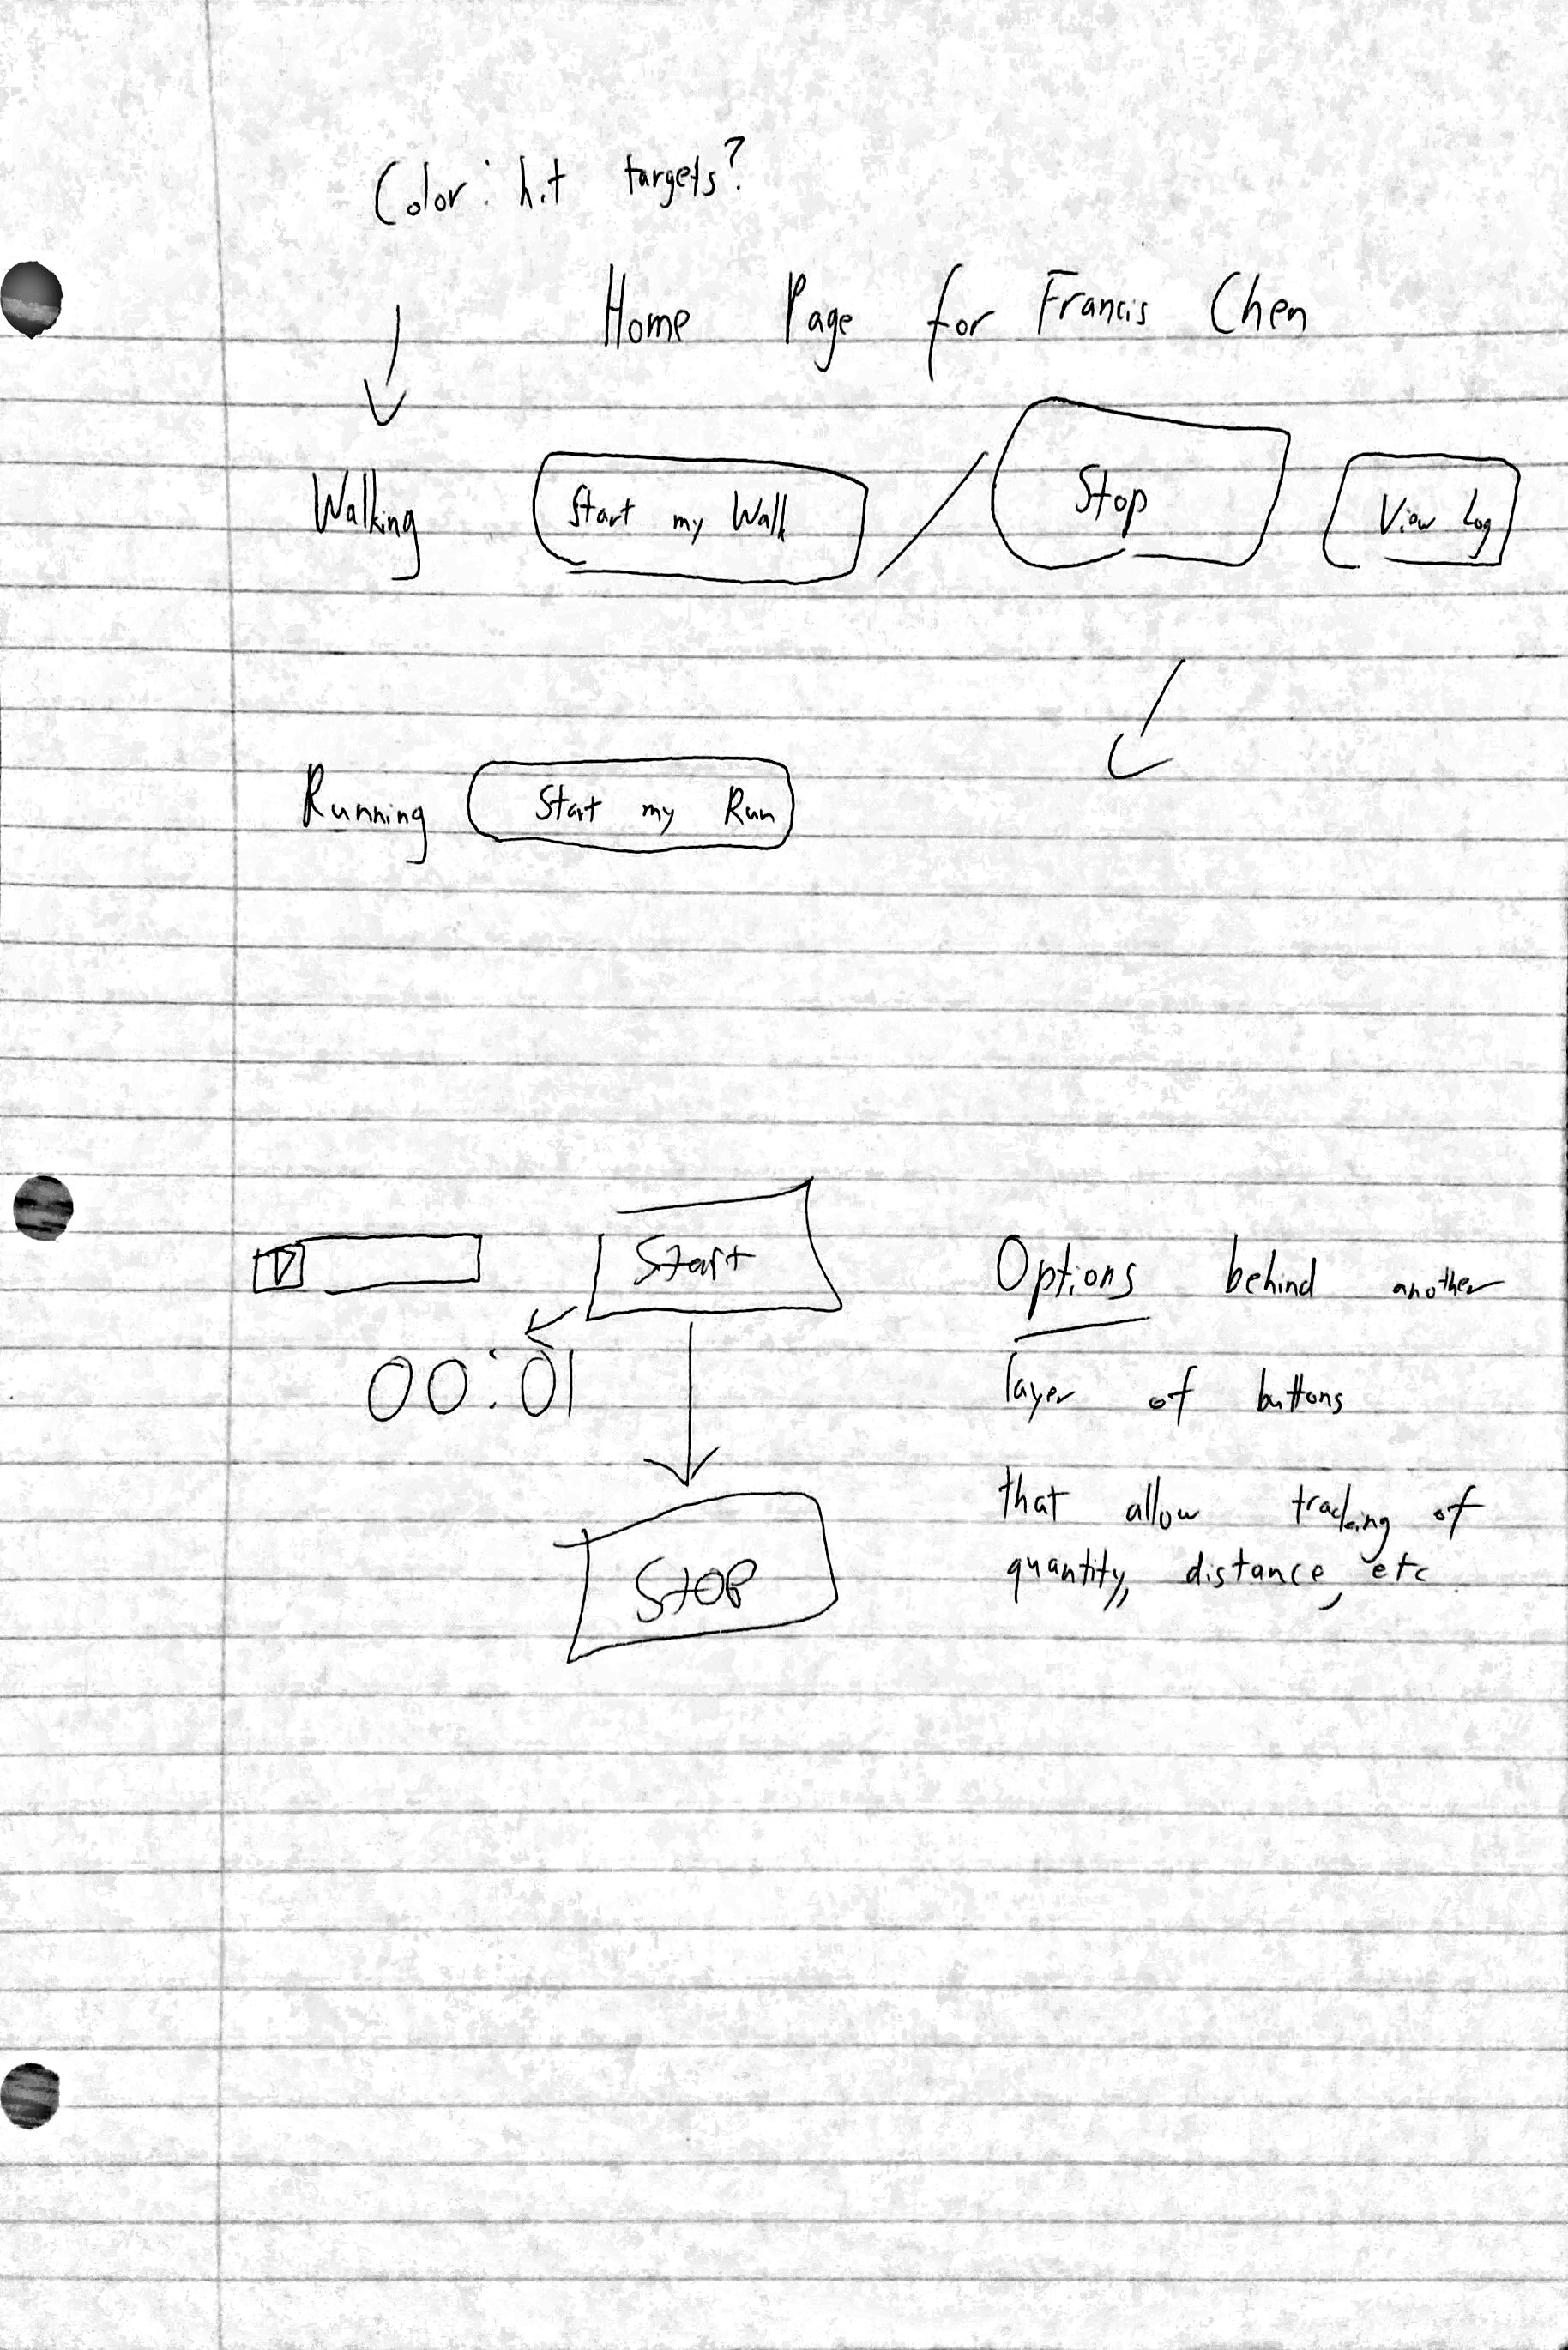 Color: hit targets?
Home Page for Francis Chen
Walking Start my Walk / Stop View Log
Running Start my Run
Start
00:01
STOP
Options behind another
layer of buttons
that allow tracking of
quantity, distance, etc